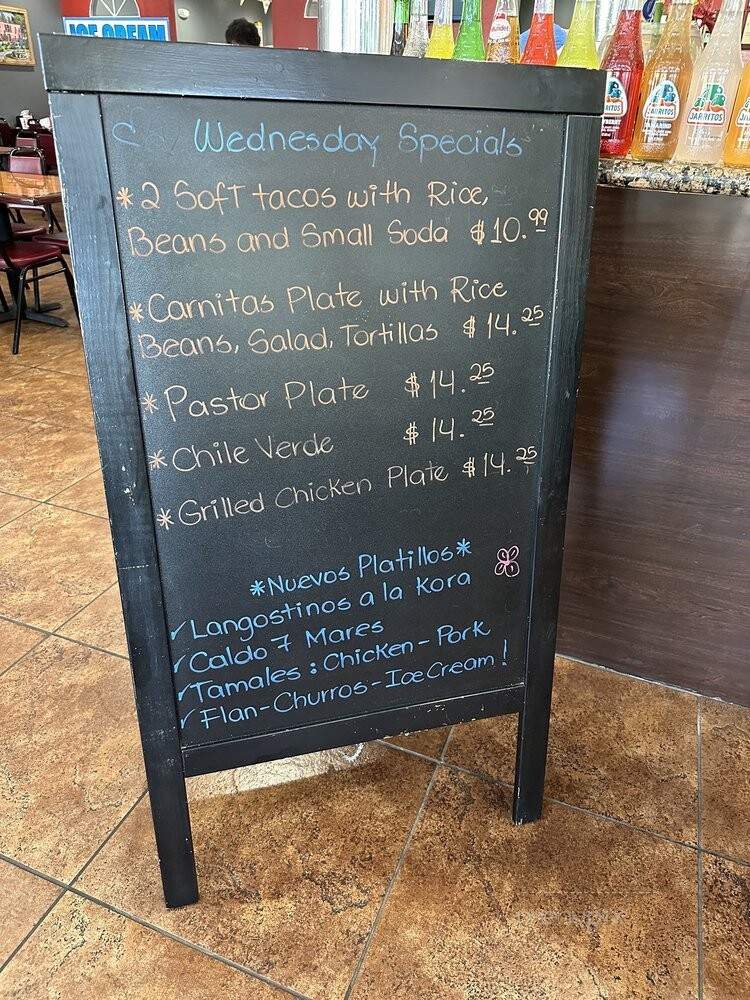 ICE CREAM
Wednesday Specials
*2 Soft tacos with Rice,
Beans and Small Soda $10.99
*Carnitas Plate with Rice
Beans, Salad, Tortillas $14.25
*Pastor Plate $14.25
*Chile Verde $14.25
*Grilled Chicken Plate $14.25
*Nuevos Platillos*
✓Langostinos a la Kora
✓Caldo 7 Mares
✓Tamales: Chicken-Pork
✓Flan-Churros-Ice Cream!
JARRITOS
JARRITOS
JARRITOS